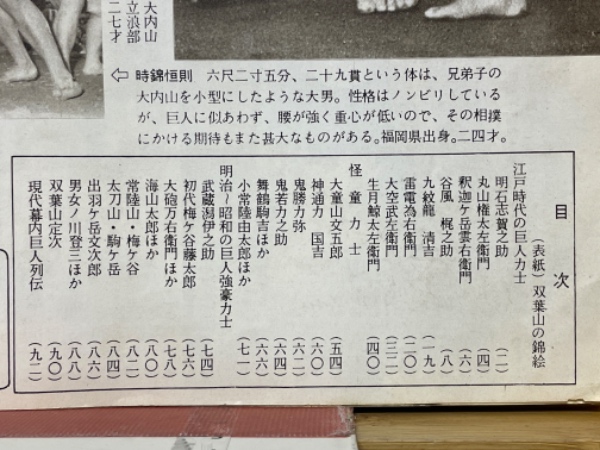 大内山
立浪部
二七才
⇦ 時錦恒則 六尺二寸五分、二十九貫という体は、兄弟子の
大内山を小型にしたような大男。性格はノンビリしている
が、巨人に似あわず、腰が強く重心が低いので、その相撲
にかける期待もまた甚大なものがある。福岡県出身。二四才。
目次
(表紙) 双葉山の錦絵
江戸時代の巨人力士
明石志賀之助 (二)
丸山権太左衛門 (四)
釈迦ケ岳雲右衛門 (六)
谷風 梶之助 (八)
九紋龍 清吉 (一九)
雷電為右衛門 (二二)
大空武左衛門 (三二)
生月鯨太左衛門 (四〇)
怪童力士
大童山文五郎 (五四)
神通力 国吉 (六〇)
鬼勝力弥 (六二)
鬼若力之助 (六四)
舞鶴駒吉ほか (六六)
小常陸由太郎ほか (七一)
明治~昭和の巨人強豪力士
武蔵潟伊之助 (七四)
初代梅ケ谷藤太郎 (七六)
大砲万右衛門ほか (七八)
海山太郎ほか (八〇)
常陸山・梅ケ谷 (八二)
太刀山・駒ケ岳 (八四)
出羽ケ岳文次郎 (八六)
男女ノ川登三ほか (八八)
双葉山定次 (九〇)
現代幕内巨人列伝 (九二)